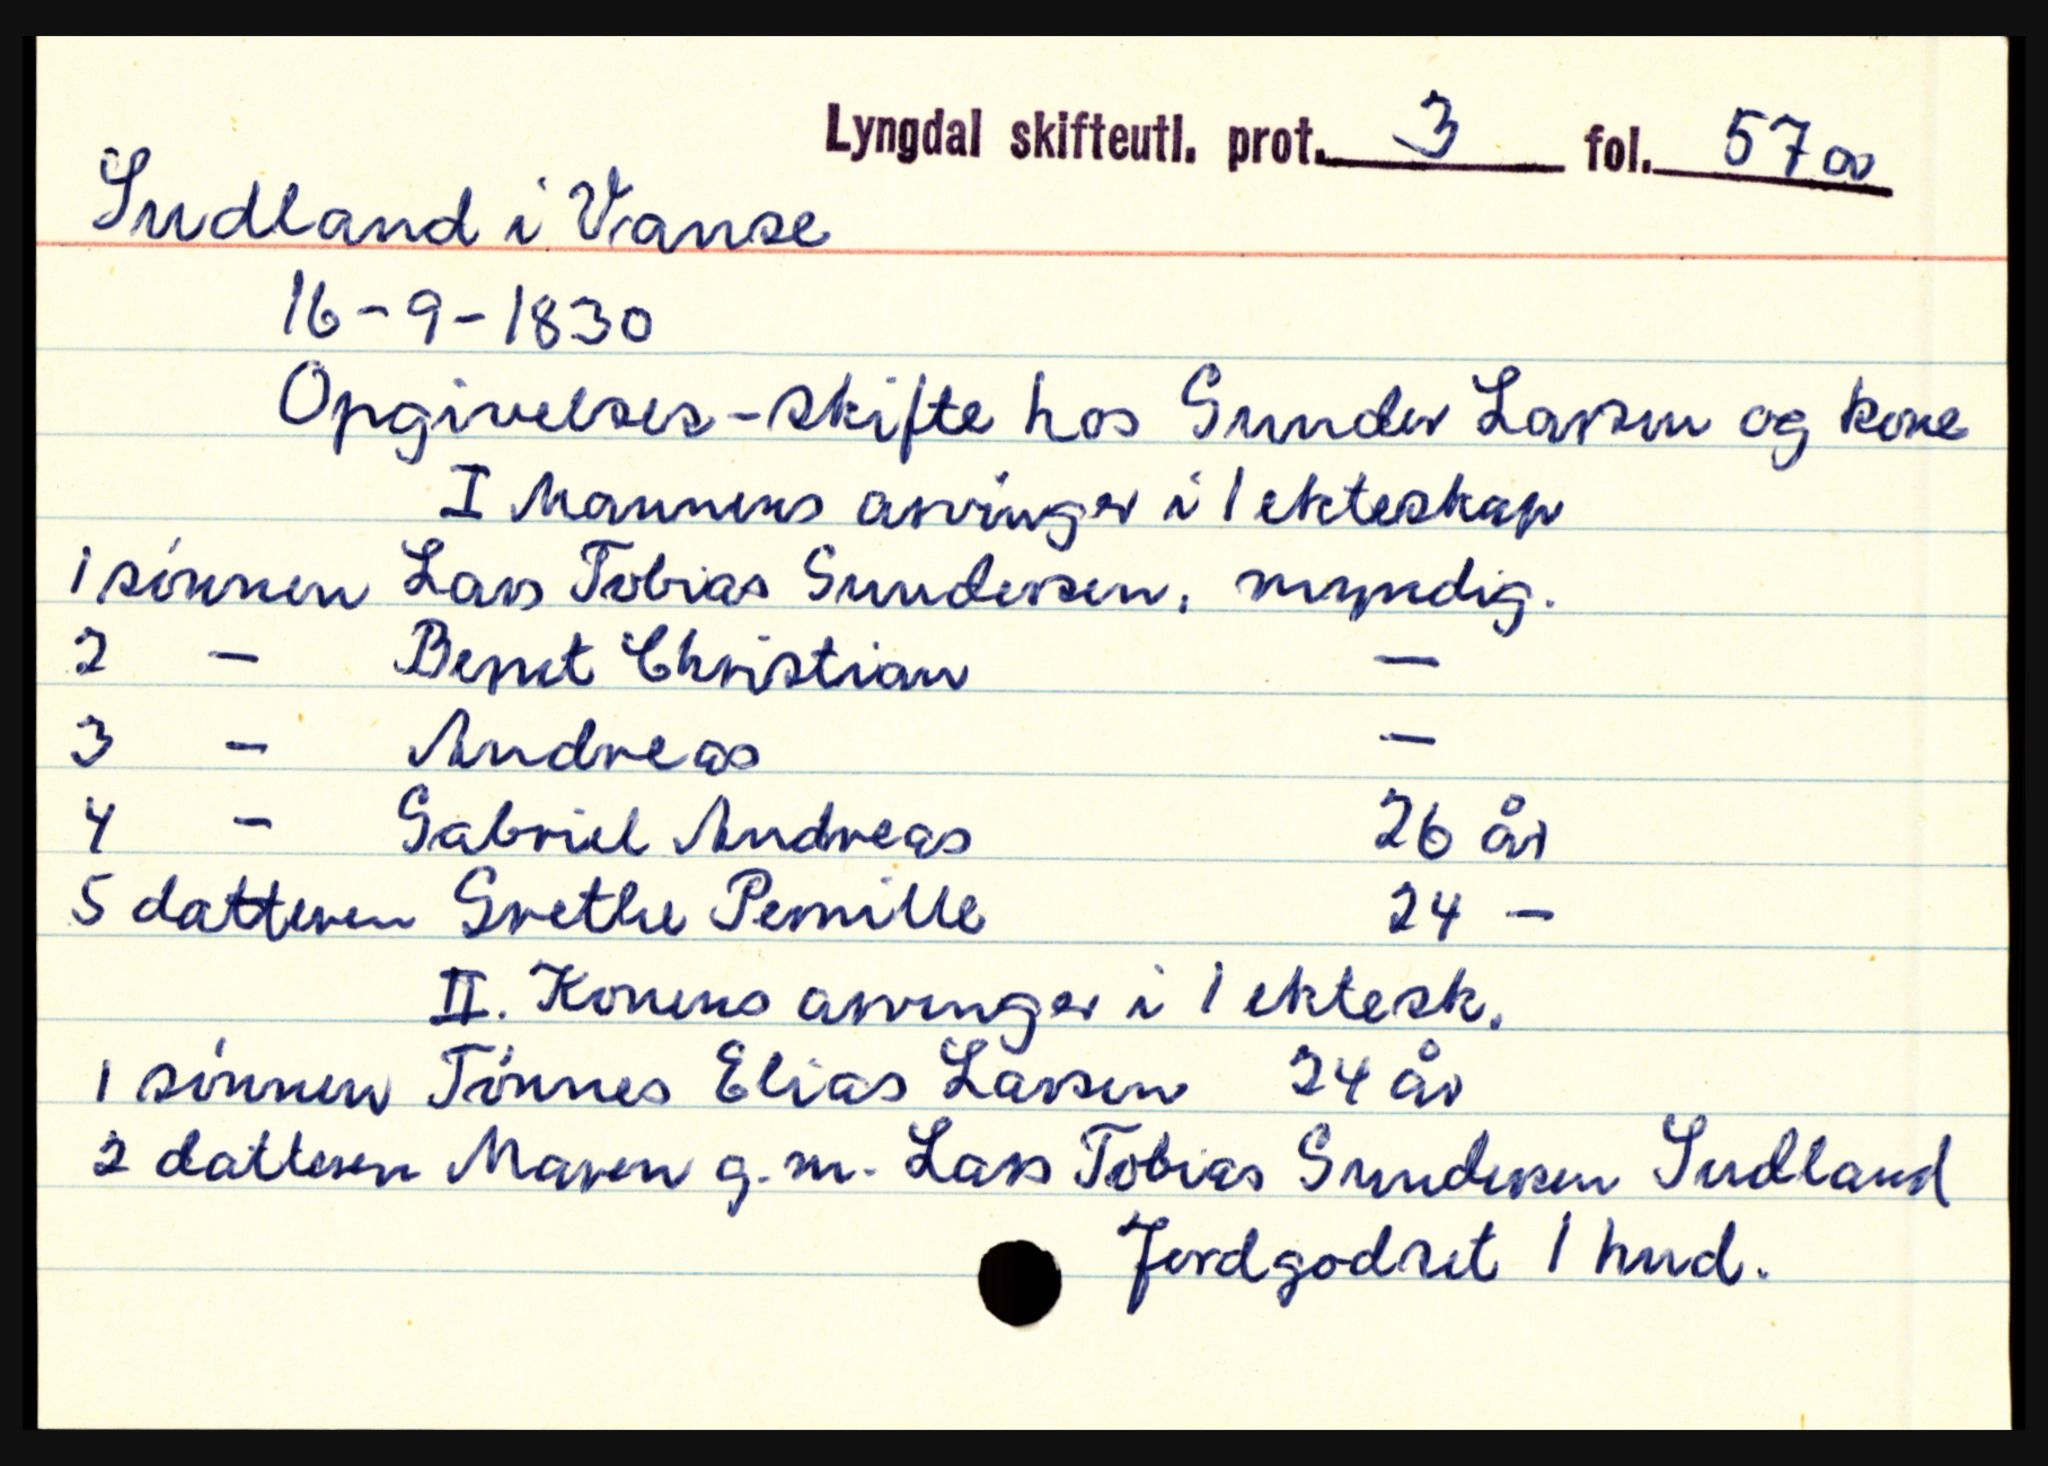 Lyngdal skifteutl. prot. 3 fol. 57a
Sudland i Vanse
16-9-1830
Opgivelses-skifte hos Gunder Larsen og kone
I Mannens arvinger i 1 ekteskap
1 sønnen Lars Tobias Gundersen, myndig.
2 - Bernt Christian -
3 - Andreas -
4 - Gabriel Andreas 26 år
5 datteren Grethe Pernille 24 -
II. Konens arvinger i 1 ektesk.
1 sønnen Tønnes Elias Larsen 24 år
2 datteren Maren g.m. Lars Tobias Gundersen Sudland
Jordgodset 1 hud.